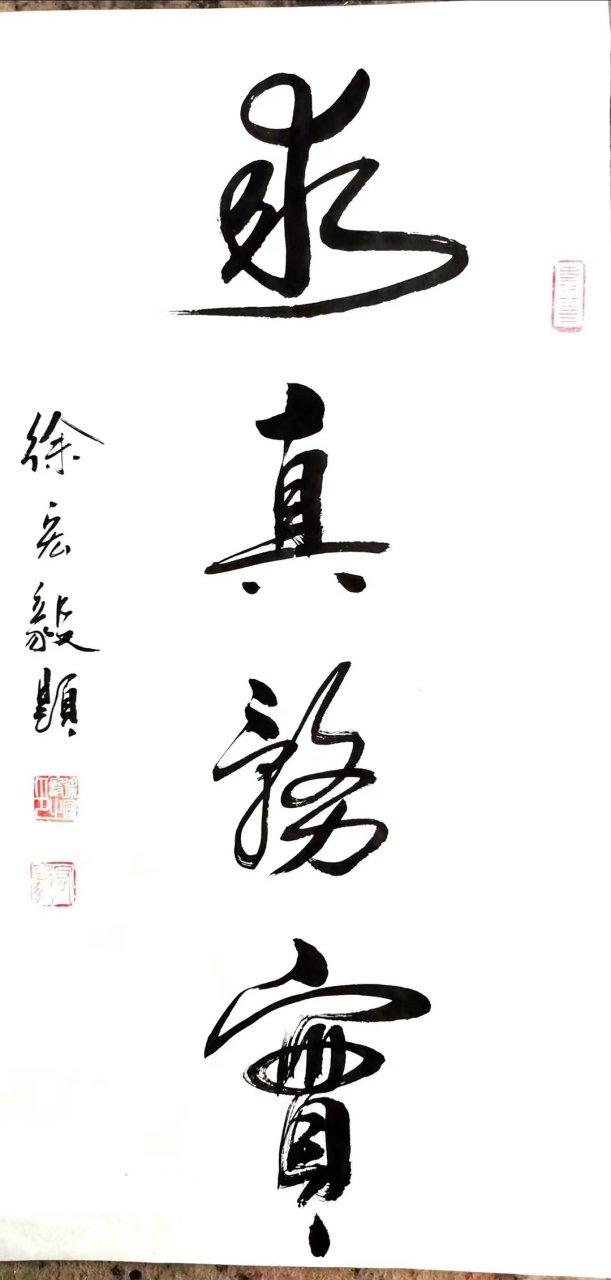 求真務實
徐宏毅題